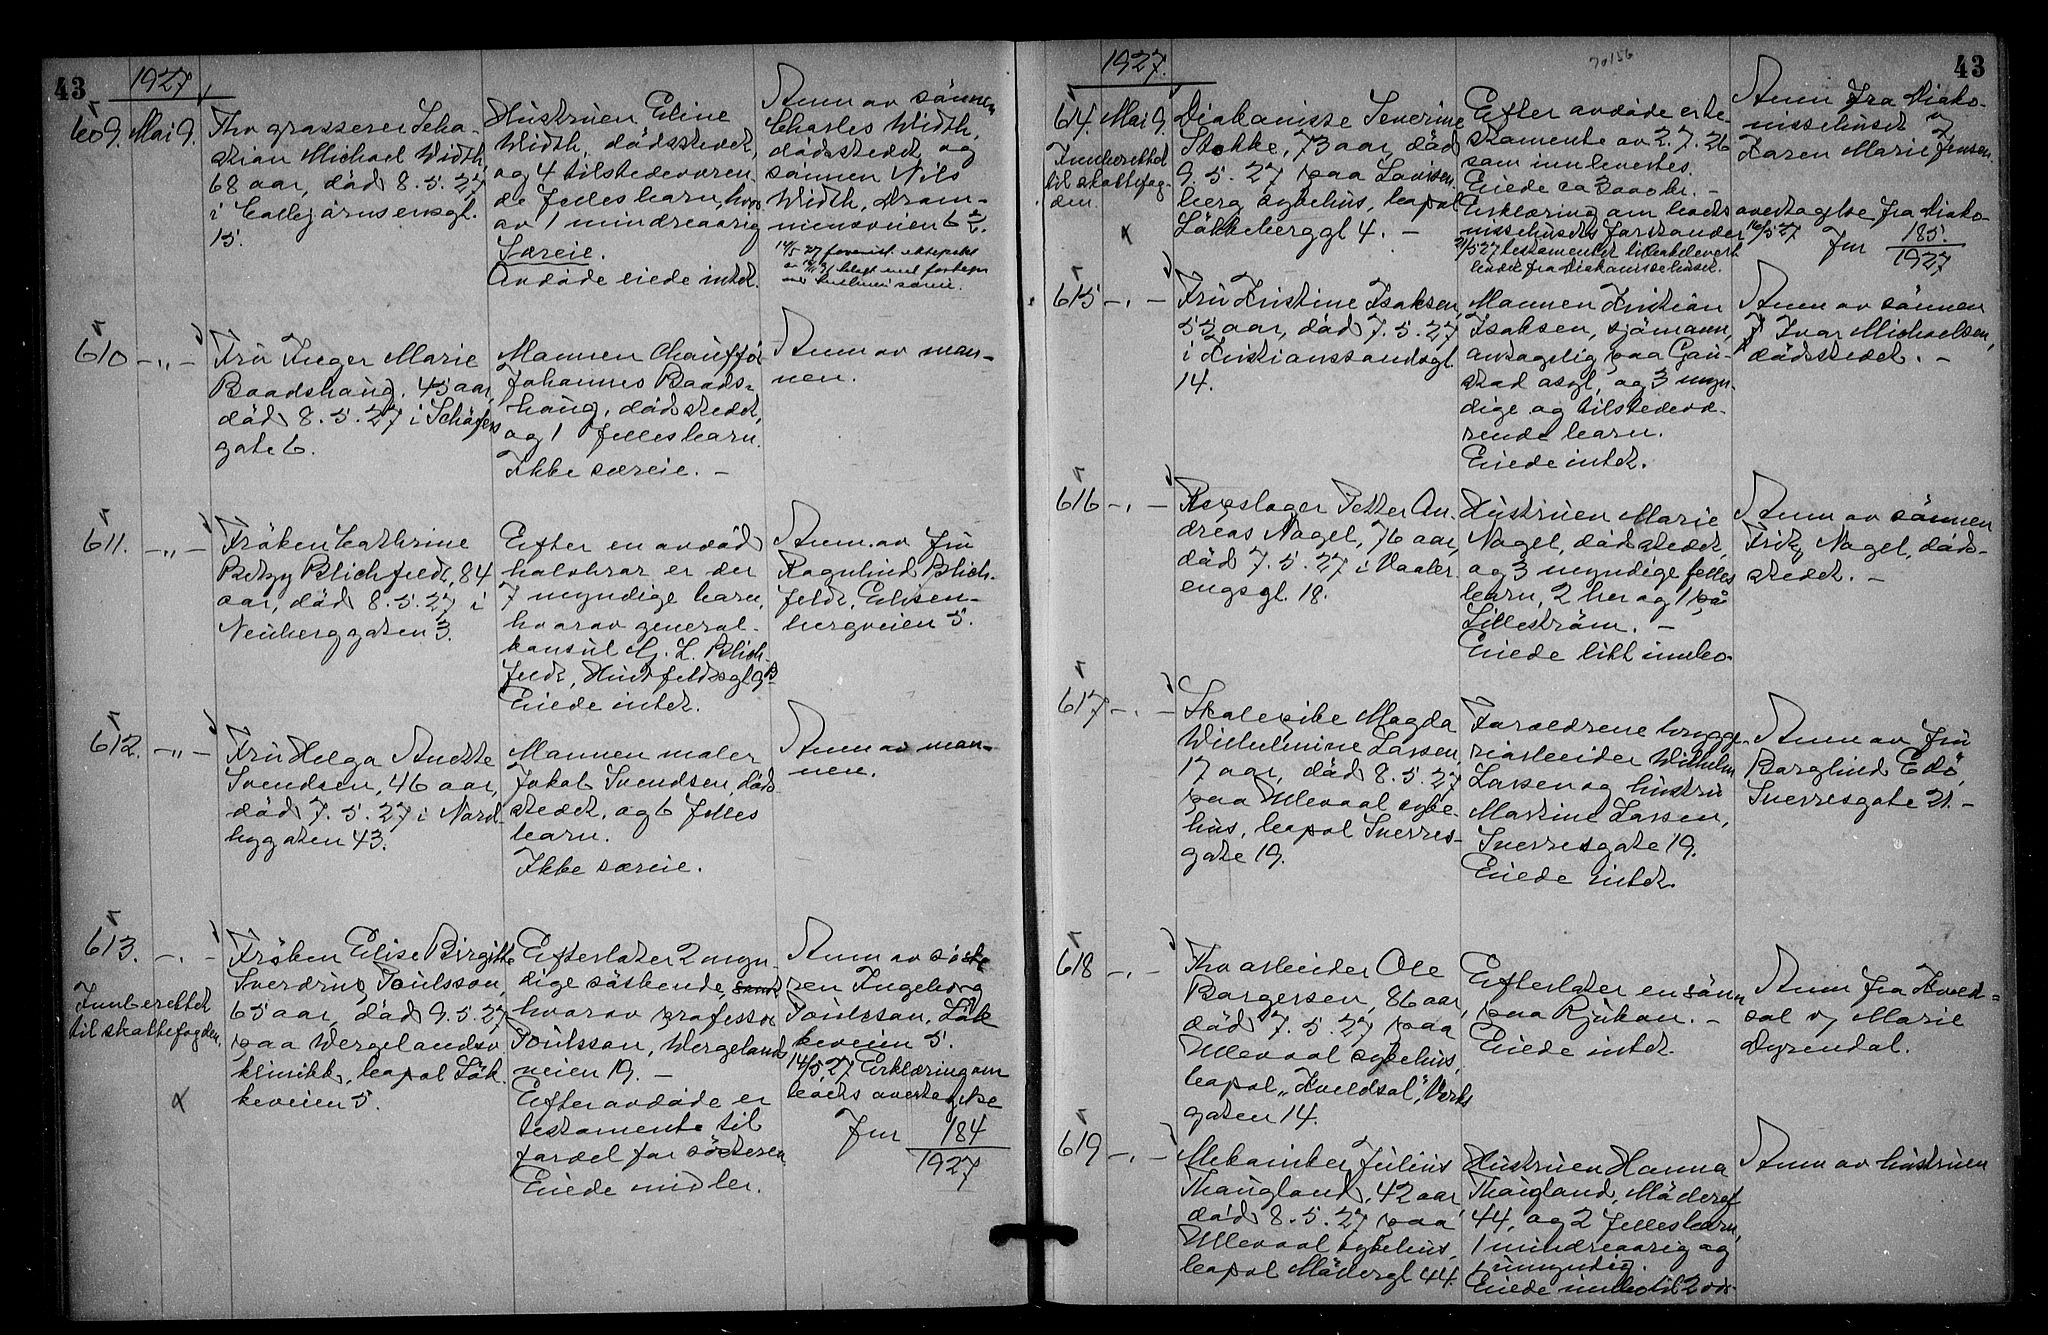 43
1927
609. Mai 9.
Fhv grosserer Seba-
stian Michael Width,
68 aar, död 8.5.27
i Calmeyersgt.
15.
Hustruen Eline
Width, dödsstedet,
og 4 tilstedeværen
de fellesbarn, hvor
av 1 mindreaarig
Særeie.
Avdöde eiede intet.
Anm av sönnen
Charles Width,
dödsstedet og
sönnen Nils
Width, Dram-
mensveien 6
610 -„-
Fru Inger Marie
Baadshaug, 45 aar,
död 8.5.27 i Schäfers
gate 6.
Mannen Chaufför
Johannes Baads-
haug, dödsstedet,
og 1 fellesbarn.
Ikke særeie. -
Anm av man-
nen.
611. -„-
Fröken Cathrine
Betzy Blichfeldt, 84
aar, död 8.5.27 i
Neuberggaten 3.
Efter en avdöd
halvbror er der
7 myndige barn,
hvorav general-
konsul G. L. Blich-
feldt, Huitfeldtsgt 9B
Eiede intet.
Anm. av fru
Ragnhild Blich-
feldt, Eilisen-
bergveien 5.
612. -„-
Fru Helga Anette
Svendsen, 46 aar,
död 7.5.27 i Nord-
bygaten 43.
Mannen maler
Jakob Svendsen, döds
stedet, og 6 felles
barn.
Ikke særeie.
Anm av man-
nen.
613. -„-
Innberettet
til skattefogden.
x
Fröken Elise Birgitte
Sverdrup Poulsson,
65 aar, död 9.5.27
paa Wergelands
klinikk, bopæl Lök-
keveien 5.
Efterlater 2 myn-
dige söskende,
hvorav professor
Poulsson, Wergelands
veien 19. -
Efter avdöde er
testamente til
fordel for sösteren
Eiede midler.
Anm av söste
ren Ingeborg
Poulsson, Lök
keveien 5.
14/5 27 Erklæring om
boets overtagelse
Jnr 184
1927
43
1927.
70156
614. Mai 9.
Innberettet
til skattefog-
den.
x
Diakonisse Severine
Stokke, 73 aar, död
9.5.27 paa Lovisen-
berg sykehus, bopæl
Lökkeberggt 4. -
Efter avdöde er te-
stamente av 2.7.26
som innleveres.
Eiede ca 3000 kr. -
Erklæring om boets
overtagelse fra Diako-
nissehusets forstander 16/5 27
21/5 27 testamentet tilbakelevert
fra Diakonissehuset.
Anm fra Diako-
nissehuset v
Karen Marie Jensen.
Jnr 185.
1927
615 -„-
Fru Kristine Isaksen,
55 aar, död 7.5.27
i Kristianssandsgt.
14.
Mannen Kristian
Isaksen, sjömann,
antagelig paa Gau-
stad asyl, og 3 myn-
dige og tilstedevæ-
rende barn.
Eiede intet.
Anm av sönnen
Ivar Michaelsen,
dödsstedet. -
616 -„-
Repslager Petter An-
dreas Nagel, 76 aar,
död 7.5.27 i Vaaler-
engsgt. 18.
Hustruen Marie
Nagel, dödsstedet,
og 3 myndige felles
barn, 2 her og 1 på
Lilleström. -
Eiede litt innbo.
Anm av sönnen
Fritz Nagel, döds-
stedet. -
617 -„-
Skolepike Magda
Wilhelmine Larsen,
17 aar, död 8.5.27
paa Ullevaal syke-
hus, bopæl Sverres-
gate 19.
Foreldrene brygge-
riarbeider Wilhelm
Larsen og hustru
Martine Larsen,
Sverresgate 19.
Eiede intet.
Anm av fru
Borghild Edö,
Sverresgate 21. -
618 -„-
Fhv arbeider Ole
Borgersen, 86 aar,
död 7.5.27 paa
Ullevaal sykehus,
bopæl „Kveldsol", Verks
gaten 14.
Efterlater en sönn
paa Rjukan. -
Eiede intet.
Anm fra Kveld-
sol v/ Marie
Dyrendal.
619 -„-
Mekaniker Julius
Thaugland, 42 aar,
död 8.5.27 paa
Ullevaal sykehus,
bopæl Mödergt 44.
Hustruen Hanna
Thaugland, Mödergt
44, og 2 fellesbarn,
1 mindreaarig og
1 umyndig.
Eiede innbo til 2 000
Anm av hustruen